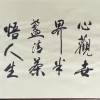 心觀世
界半
盞清茶
悟人生